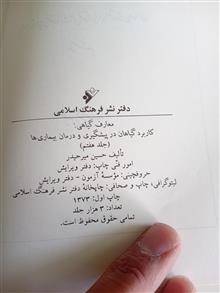 دفتر نشر فرهنگ اسلامی
معارف گیاهی:
کاربرد گیاهان در پیشگیری و درمان بیماری‌ها
(جلد هفتم)
تألیف: حسین میرحیدر
امور فنی چاپ: دفتر ویرایش
حروفچینی: مؤسسهٔ آزمون - دفتر ویرایش
لیتوگرافی، چاپ و صحافی: چاپخانهٔ دفتر نشر فرهنگ اسلامی
چاپ اول: ۱۳۷۳
تعداد: ۳ هزار جلد
تمامی حقوق محفوظ است.